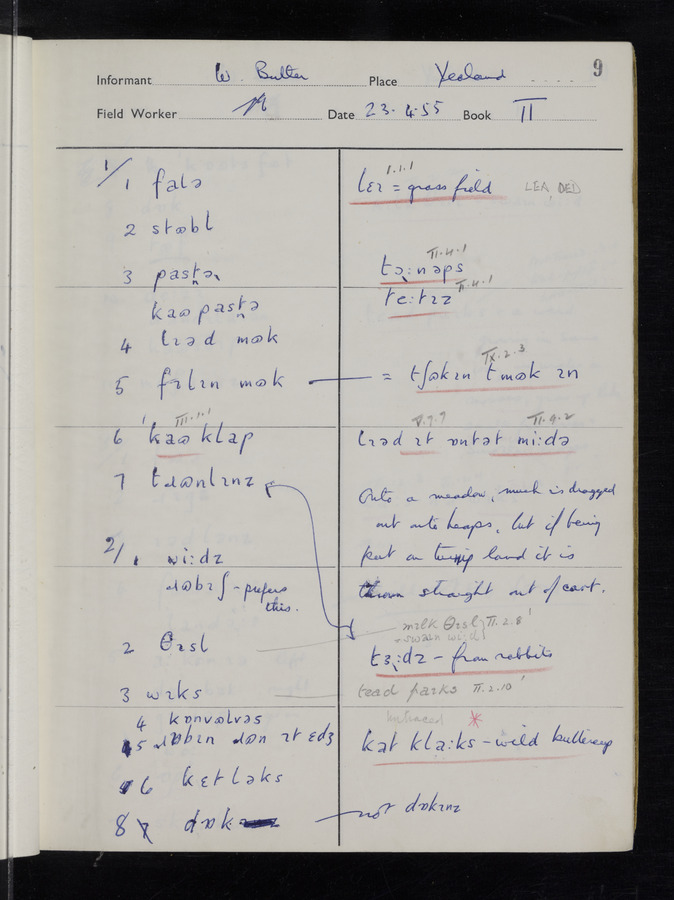 9
Informant W. Butler Place Yealand
Field Worker Date 23.4.55 Book II
1/1 falə
2 stʊbl
3 pastə
kaʊpastə
4 lɪəd mʊk
5 fɪlɪn mʊk
6 kaʊ klap III.1.1
7
2/1 wi:dz
ɹʊbɪʃ - prefers
this.
2 θɪsl
3 wɪks
4 kɒnvɒlvəs
5 ɹɒbɪn ɹʊn ɪt ɛdʒ
6 kɛtləks
8 dɒk
1.1.1
lɛɪ = grass field LEA, DED
II.4.1
tə:nəps
te:tɪz II.4.1
IX.2.3
= tʃʊkɪn tmʊk ɪn
V.7.7 II.9.2
lɪəd ɪt ɒntət mi:də
Onto a meadow, muck is dragged
out onto heaps, but if being
put on land it is
thrown straight out of cart.
mɪlk θɪsl II.2.8
tɜ:dz - from rabbits
II.2.10
kat kla:ks - wild buttercup
not dɒkɪnz